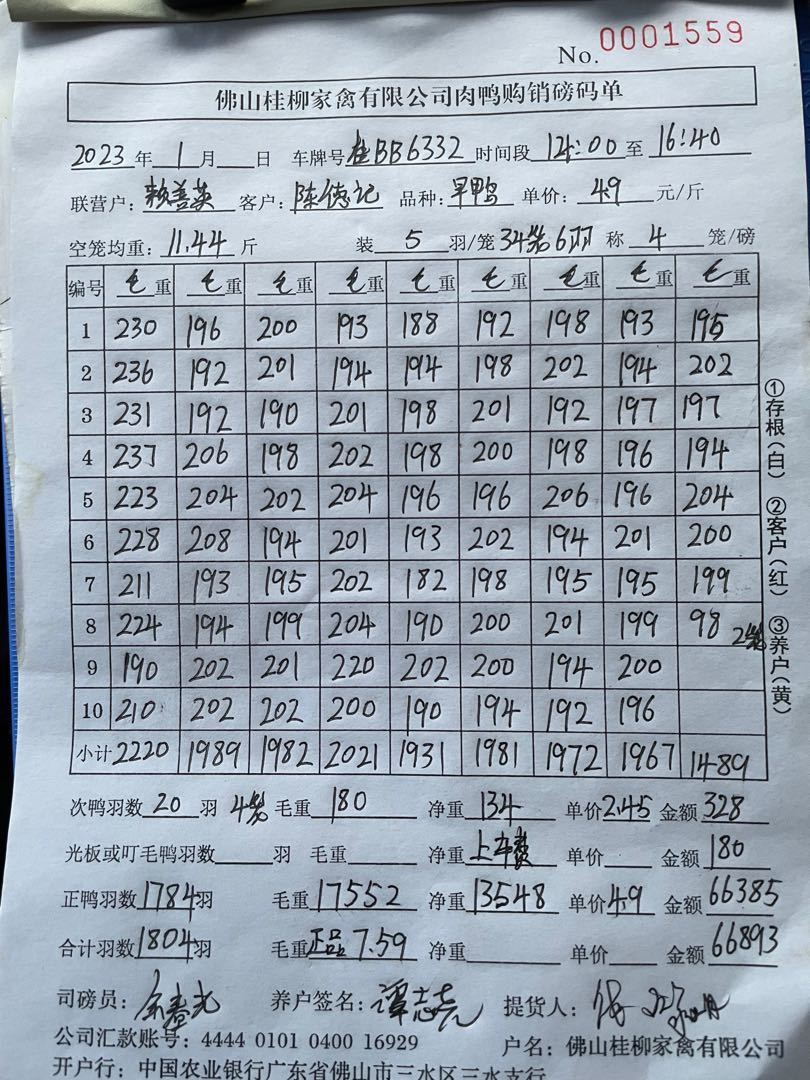 No. 0001559
佛山桂柳家禽有限公司肉鸭购销磅码单
2023 年 1 月 日 车牌号 桂BB6332 时间段 14:00 至 16:40
联营户: 赖善英 客户: 陈德记 品种: 旱鸭 单价: 4.9 元/斤
空笼均重: 11.44 斤 装 5 羽/笼 34笼6羽 称 4 笼/磅
编号 毛重 毛重 毛重 毛重 毛重 毛重 毛重 毛重 毛重
1 230 196 200 193 188 192 198 193 195
2 236 192 201 194 194 198 202 194 202
3 231 192 190 201 198 201 192 197 197
4 237 206 198 202 198 200 198 196 194
5 223 204 202 204 196 196 206 196 204
6 228 208 194 201 193 202 194 201 200
7 211 193 195 202 182 198 195 195 199
8 224 194 199 204 190 200 201 199 98 2笼
9 190 202 201 220 202 200 194 200
10 210 202 202 200 190 194 192 196
小计 2220 1989 1982 2021 1931 1981 1972 1967 1489
次鸭羽数 20 羽 4笼 毛重 180 净重 134 单价 2.45 金额 328
光板或叮毛鸭羽数 羽 毛重 净重 上车费 单价 金额 180
正鸭羽数 1784 羽 毛重 17552 净重 13548 单价 4.9 金额 66385
合计羽数 1804 羽 毛重 正品 7.59 净重 单价 金额 66893
司磅员: 养户签名: 谭志亮 提货人:
公司汇款账号: 4444 0101 0400 16929 户名: 佛山桂柳家禽有限公司
开户行: 中国农业银行广东省佛山市三水区三水支行
①存根(白) ②客户(红) ③养户(黄)